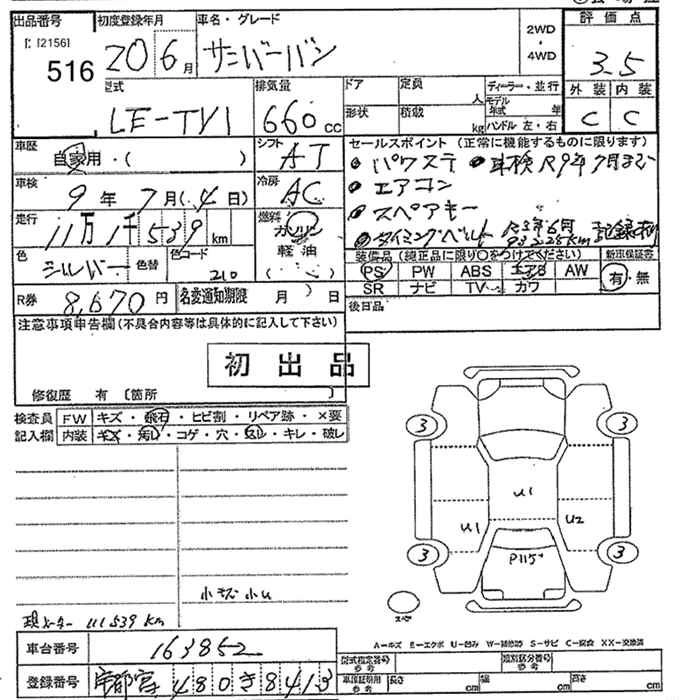 出品番号 初度登録年月 車名・グレード 2WD・4WD 評価点
[12156]
516 20 6月 サンバーバン 3.5
型式 排気量 ドア 定員 人 ディーラー・並行 外装 内装
LE-TV1 660 cc 形状 積載 kg モデル年式 年 C C
ハンドル 左・右
車歴 自家用・( ) シフト AT
セールスポイント (正常に機能するものに限ります)
・パワステ ・車検R9年7月まで
車検 9年 7月(4日) 冷房 AC
・エアコン
・スペアキー
走行 11万1千539km 燃料 ガソリン 軽油 ( )
・タイミングベルト R3年6月 記録有
色 シルバー 色替 色コード 210
装備品 (純正品に限り〇をつけてください) 新車保証書
PS PW ABS エアB AW 有・無
SR ナビ TV カワ
R券 8,670円 名変通知期限 月 )
後日品
注意事項申告欄(不具合内容等は具体的に記入して下さい)
初出品
修復歴 有 〔箇所 〕
検査員 FW キズ・飛石・ヒビ割・リペア跡・×要
記入欄 内装 キズ・汚れ・コゲ・穴・・キレ・破レ
3 3
U1
U1 U2
3 3
P115
小キズ小U
スペア
現メーター 111539km
A-キズ E-エクボ U-凹み W-補修跡 S-サビ C-腐食 XX-交換済
車台番号 163852
型式指定番号 参考 類別区分番号 参考
登録番号 宇都宮480き8413
車検証明用 参考 長さ cm 幅 cm 高さ cm